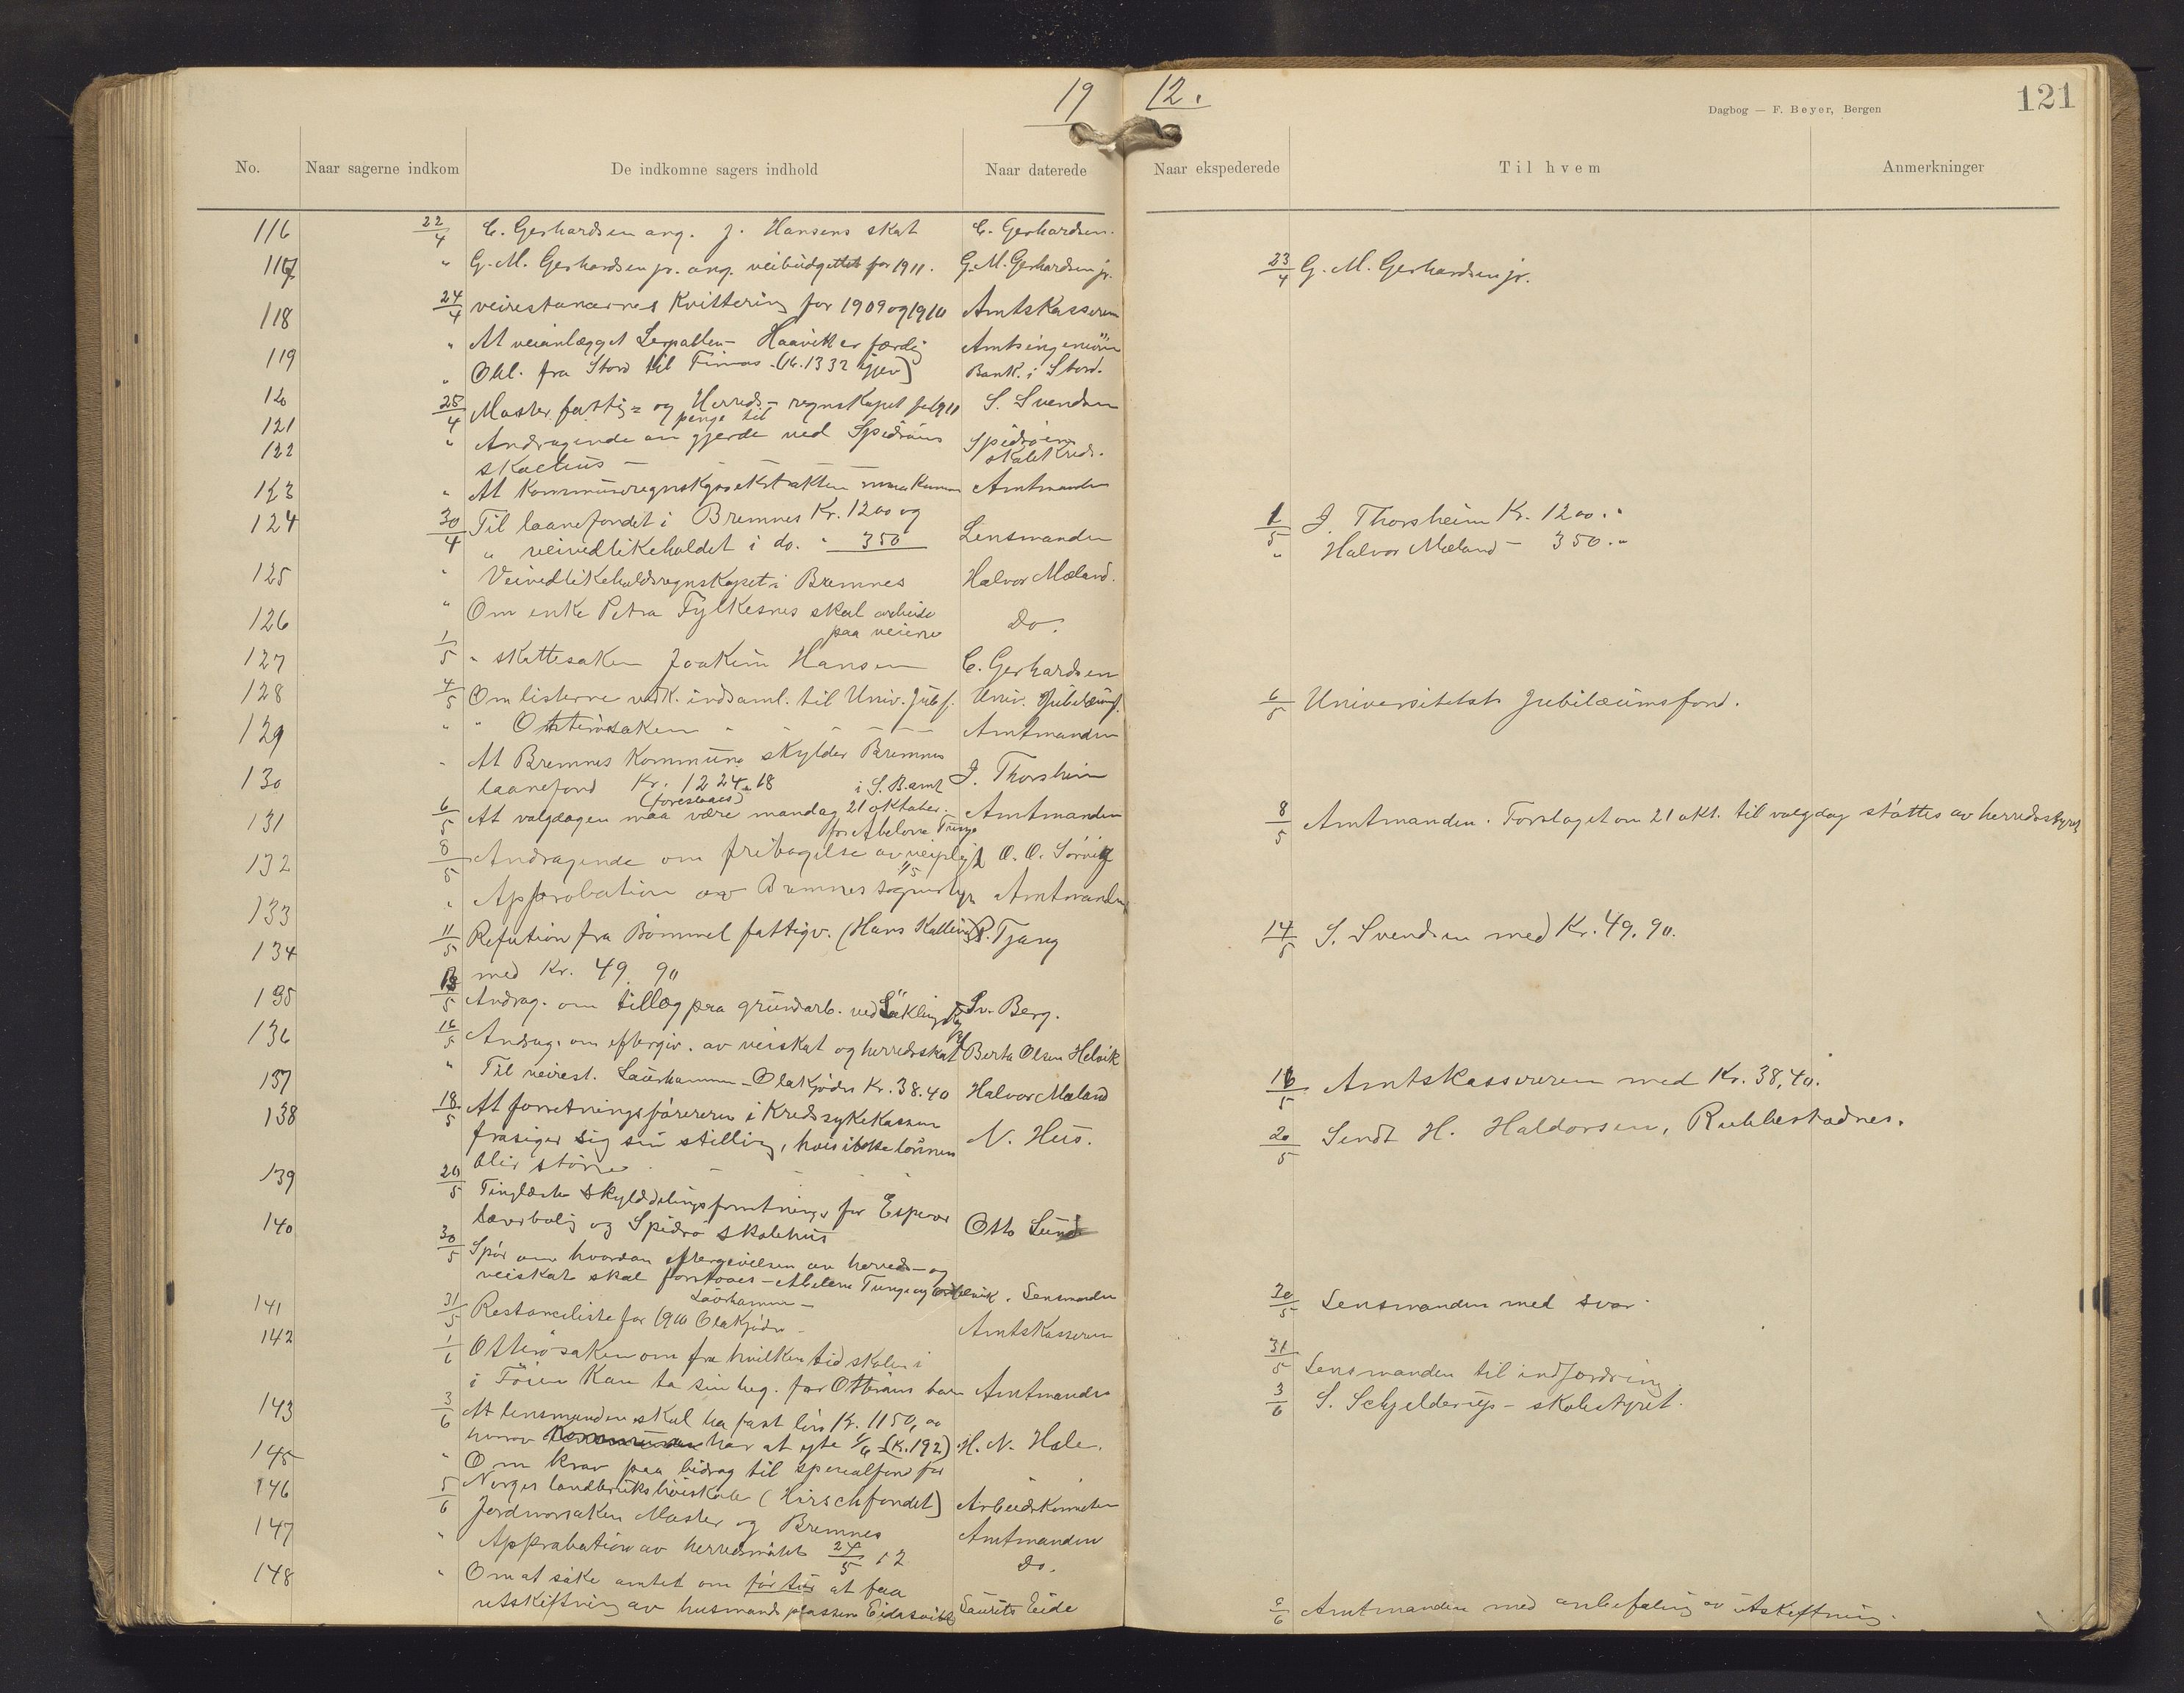 19 12.
Dagbog — F. Beyer, Bergen
121
No. Naar sagerne indkom De indkomne sagers indhold Naar daterede Naar ekspederede Til hvem Anmerkninger
116 22/4 C. Gerhardsen ang. J. Hansens skat C. Gerhardsen.
117 " G. M. Gerhardsen jr. ang. veibudgettet for 1911. G. M. Gerhardsen jr. 23/4 G. M. Gerhardsen jr.
118 24/4 veirestancernes Kvittering for 1909 og 1910 Amtskasseren
119 " At veianlægget - Haavik er færdig Amtsingeniøren
" Obl. fra Stord til Finnaas - (K. 1332 gjev) Bank. i Stord.
120 25/4 Moster fattig= og Herreds- regnskapet for 1911 S. Svendsen
121
penge til
122 " Andragende om gjerde ved Spidsöens Spidsöens
skolehus — skolekreds.
123 " At Kommuneregnskabsekstrakten maa komme Amtmanden
124 30/4 Til laanefondet i Bremnes Kr. 1200 og Lensmanden 1/5 J. Thorsheim Kr. 1200."
" veivedlikeholdet i do. " 350 " Halvor Mæland - 350."
125 " Veivedlikeholdsregnskapet i Bremnes Halvor Mæland.
126 " Om enke Petra Fylkesnes skal arbeide do.
paa veiene
127 1/5 " skattesaken Joakim Hansen C. Gerhardsen
128 4/5 Om listerne vedk. indsaml. til Univ. Jub f. Univ. Jubilæumsf. 6/5 Universitetets Jubilæumsfond.
129 " " Otterösaken - - - - Amtmanden
130 " At Bremnes Kommune skylder Bremnes
laanefond Kr. 1224.18 J. Thorsheim
(foreslaaes) i S. B. amt
131 6/5 At valgdagen maa være mandag 21 oktober. Amtmanden 8/5 Amtmanden. Forslaget om 21 okt. til valgdag støttes av herredsstyret
for Abelone Tunge
132 8/5 Andragende om fritagelse av veipligt O. O. Sørvig
133 " Approbation av Bremnes sognestyr 1/5 Amtmanden
134 11/5 Refution fra Bömmel fattigv. (Hans Kallevaag) P. Tjong 14/5 S. Svendsen med Kr. 49.90.
med Kr. 49.90
135 13/5 Andrag. om tillæg paa grundarb. ved Sv. Berg.
136 16/5 Andrag. om eftergiv. av veiskat og herredsskat Berta Olsen Helvik
137 " Til veirest. Laurhammer - Olakjødn Kr. 38.40 Halvor Mæland 16/5 Amtskasseren med Kr. 38,40.
138 18/5 At forretningsföreren i Kredssykekassen N. Hus. 20/5 Sendt H. Haldorsen, Rubbestadnes.
frasiger sig sin stilling, hvis ikke lönnen
blir större
139 20/5 Tinglæste skylddelingsforretninger for Espevær
lærerbolig og Spidsö skolehus Otto Lund
140 30/5 Spör om hvordan eftergivelsen av herreds- og
veiskat skal forstaaes - Abelone Tunge og Helvik. Lensmanden 30/5 Lensmanden med svar.
Laurhammer -
141 31/5 Restanceliste for 1910 Olakjødn Amtskasseren
142 1/6 Otterösaken om fra hvilken tid skolen i 31/5 Lensmanden til indfordring.
i Föien kan ta sin beg. for Otteröens barn Amtmanden 3/6 S. Schjelderup - skolestyret.
143 3/6 At lensmanden skal ha fast lön Kr. 1150,00
hvorav kommunen har at yte 1/6 (K. 192) H. N. Hæle.
145 " Om krav paa bidrag til specialfond for
Norges landbrukshöiskole (Hirschfondet) Arbeidskomiteen
146 5/6 Jordmorsaken Moster og Bremnes Amtmanden
147 " Approbation av herredsmötet 24/5 12 do.
148 " Om at söke amtet om for tur at faa
utskiftning av husmandsplassen Eidesvik Laurits Eide 5/6 Amtmanden med anbefaling av utskiftning.